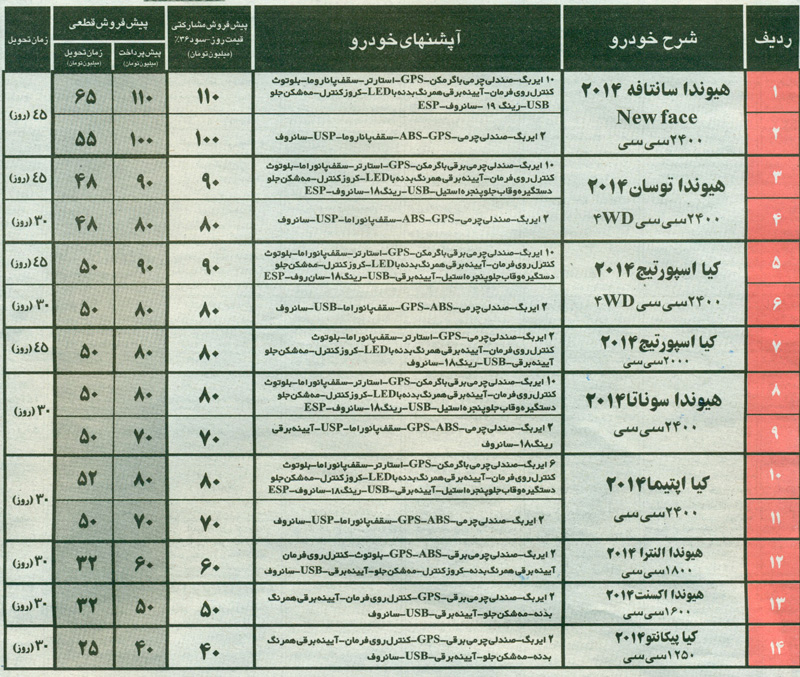 ردیف
شرح خودرو
آپشنهای خودرو
پیش‌فروش مشارکتی
قیمت روز-سود۳۶٪
(میلیون تومان)
پیش‌فروش قطعی
پیش‌پرداخت
(میلیون تومان)
زمان تحویل
(میلیون تومان)
زمان تحویل
۱
هیوندا سانتافه ۲۰۱۴
New face
۲۴۰۰سی‌سی
۱۰ ایربگ-صندلی چرمی باگرمکن-GPS-استارتر-سقف پاناروما-بلوتوث
کنترل روی فرمان-آیینه برقی همرنگ بدنه با LED-کروز کنترل-مه‌شکن جلو
USB-رینگ ۱۹-سانروف-ESP
۱۱۰
۱۱۰
۶۵
۴۵ (روز)
۲
۲ ایربگ-صندلی چرمی-ABS-GPS-سقف پاناروما-USP-سانروف
۱۰۰
۱۰۰
۵۵
۳
هیوندا توسان ۲۰۱۴
۲۴۰۰سی‌سی ۴WD
۱۰ ایربگ-صندلی چرمی برقی باگرمکن-GPS-استارتر-سقف پانوراما-بلوتوث
کنترل روی فرمان-آیینه برقی همرنگ بدنه با LED-کروز کنترل-مه‌شکن جلو
دستگیره وقاب جلوپنجره استیل-USB-رینگ۱۸-سانروف-ESP
۹۰
۹۰
۴۸
۴۵(روز)
۴
۲ ایربگ-صندلی چرمی-ABS-GPS-سقف پانوراما-USP-سانروف
۸۰
۸۰
۴۸
۳۰ (روز)
۵
کیا اسپورتیج ۲۰۱۴
۲۴۰۰سی‌سی ۴WD
۱۰ ایربگ-صندلی چرمی برقی باگرمکن-GPS-استارتر-سقف پانوراما-بلوتوث
کنترل روی فرمان-آیینه برقی همرنگ بدنه با LED-کروز کنترل-مه‌شکن جلو
دستگیره وقاب جلوپنجره استیل-آیینه برقی-USB-رینگ۱۸-سان‌روف-ESP
۹۰
۹۰
۵۰
۴۵(روز)
۶
۲ ایربگ-صندلی چرمی برقی-GPS-ABS-سقف پانوراما-USB-سانروف
۸۰
۸۰
۵۰
۳۰ (روز)
۷
کیا اسپورتیج ۲۰۱۴
۲۰۰۰سی‌سی
۲ ایربگ-صندلی چرمی-GPS-استارتر-سقف پانوراما-بلوتوث
کنترل روی فرمان-آیینه برقی همرنگ بدنه با LED-کروز کنترل-مه‌شکن جلو
آیینه برقی-USB-رینگ۱۸-سانروف
۸۰
۸۰
۵۰
۴۵(روز)
۸
هیوندا سوناتا ۲۰۱۴
۲۴۰۰سی‌سی
۱۰ ایربگ-صندلی چرمی باگرمکن-GPS-استارتر-سقف پانوراما-بلوتوث
کنترل روی فرمان-آیینه برقی همرنگ بدنه با LED-کروز کنترل-مه‌شکن جلو
دستگیره وقاب جلوپنجره استیل-USB-رینگ۱۸-سانروف-ESP
۸۰
۸۰
۵۰
۳۰ (روز)
۹
۲ ایربگ-صندلی چرمی-GPS-ABS-سقف پانوراما-USP-آیینه برقی
رینگ۱۸-سانروف
۷۰
۷۰
۵۰
۱۰
کیا اپتیما ۲۰۱۴
۲۴۰۰سی‌سی
۶ ایربگ-صندلی چرمی باگرمکن-GPS-استارتر-سقف پانوراما-بلوتوث
کنترل روی فرمان-آیینه برقی همرنگ بدنه با LED-کروز کنترل-مه‌شکن جلو
دستگیره وقاب جلوپنجره استیل-آیینه برقی-USB-رینگ۱۸-سانروف-ESP
۸۰
۸۰
۵۲
۳۰ (روز)
۱۱
۲ ایربگ-صندلی چرمی-GPS-ABS-سقف پانوراما-USP-سانروف
۷۰
۷۰
۵۰
۱۲
هیوندا النترا ۲۰۱۴
۱۸۰۰سی‌سی
۲ ایربگ-صندلی چرمی برقی-GPS-ABS-بلوتوث-کنترل روی فرمان
آیینه برقی همرنگ بدنه-کروز کنترل-مه‌شکن جلو-آیینه برقی-USB-سانروف
۶۰
۶۰
۳۲
۳۰ (روز)
۱۳
هیوندا اکسنت ۲۰۱۴
۱۶۰۰سی‌سی
۲ ایربگ-صندلی چرمی برقی-GPS-کنترل روی فرمان-آیینه برقی همرنگ
بدنه-مه‌شکن جلو-آیینه برقی-USB-سانروف
۵۰
۵۰
۳۲
۳۰ (روز)
۱۴
کیا پیکانتو ۲۰۱۴
۱۲۵۰سی‌سی
۲ ایربگ-صندلی چرمی برقی-GPS-کنترل روی فرمان-آیینه برقی همرنگ
بدنه-مه‌شکن جلو-آیینه برقی-USB-سانروف
۴۰
۴۰
۲۵
۳۰ (روز)